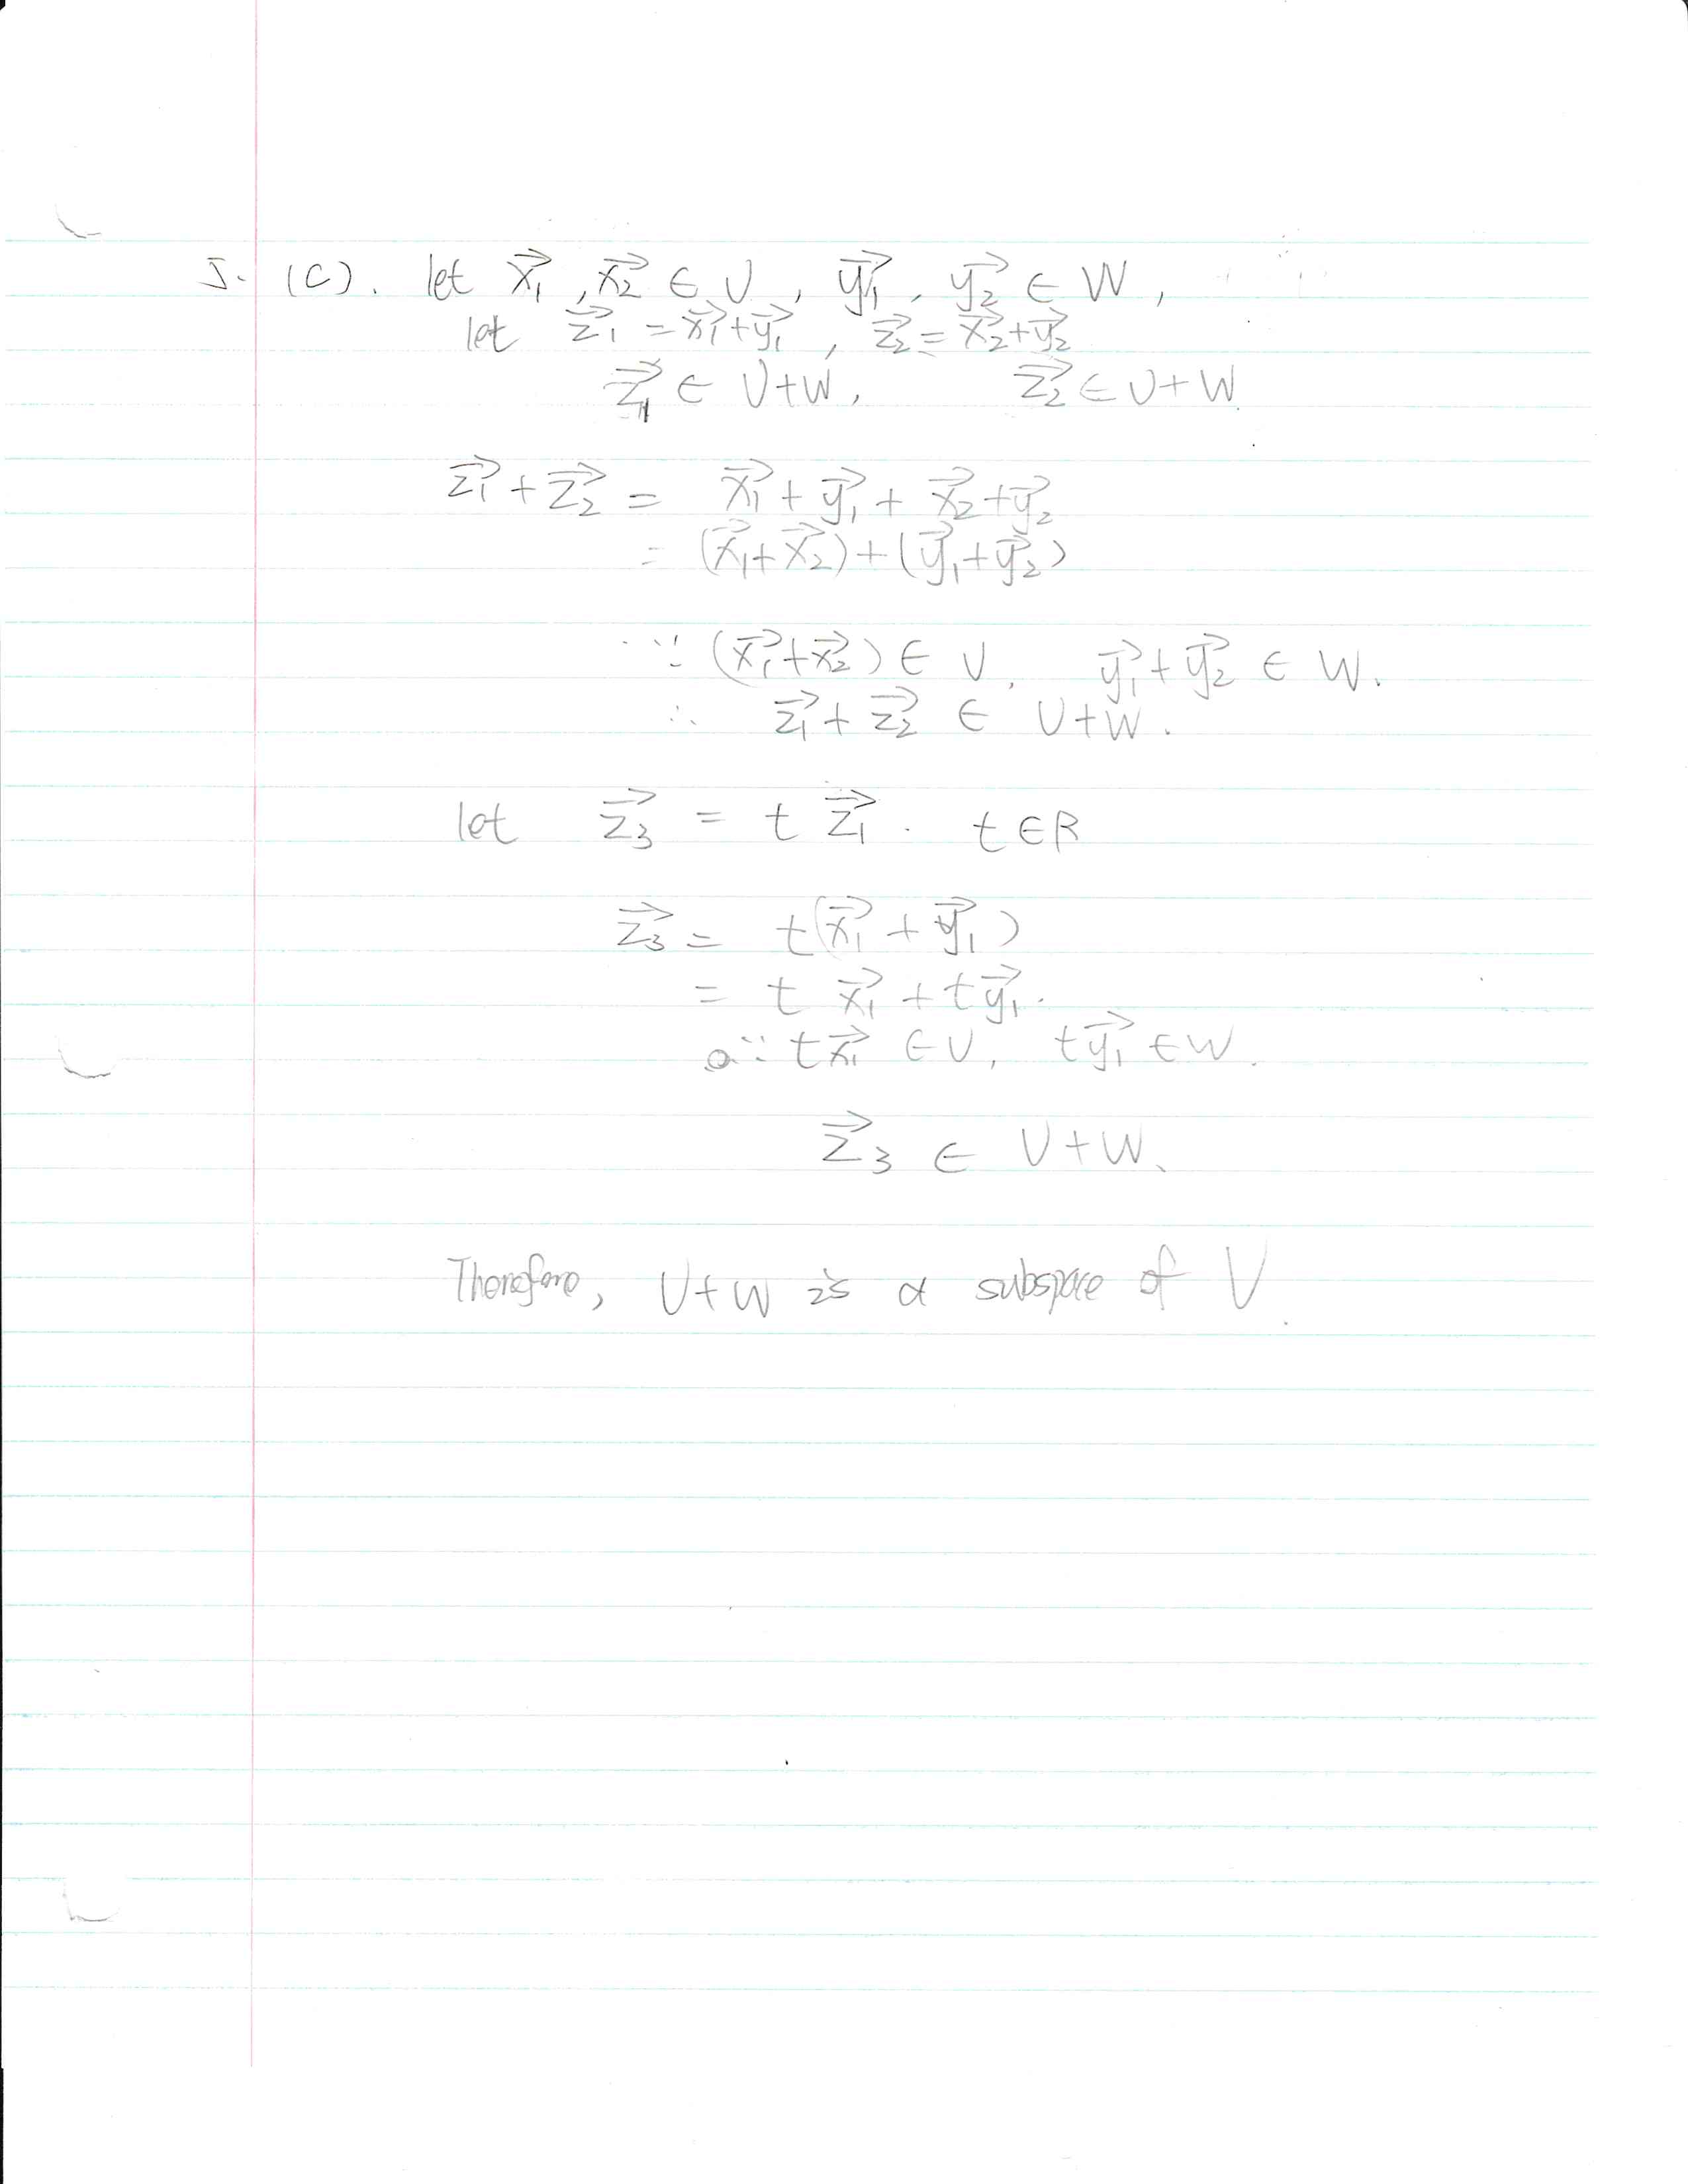 5. (C). let x⃗₁, x⃗₂ ∈ U, y⃗₁, y⃗₂ ∈ W,
let z⃗₁ = x⃗₁+y⃗₁, z⃗₂ = x⃗₂+y⃗₂
z⃗₁ ∈ U+W, z⃗₂ ∈ U+W
z⃗₁ + z⃗₂ = x⃗₁ + y⃗₁ + x⃗₂ + y⃗₂
= (x⃗₁+x⃗₂)+(y⃗₁+y⃗₂)
∵ (x⃗₁+x⃗₂) ∈ U, y⃗₁+y⃗₂ ∈ W.
∴ z⃗₁+z⃗₂ ∈ U+W.
let z⃗₃ = t z⃗₁. t∈R
z⃗₃ = t(x⃗₁ + y⃗₁)
= t x⃗₁ + t y⃗₁.
∵ t x⃗₁ ∈ U, t y⃗₁ ∈ W.
z⃗₃ ∈ U+W.
Therefore, U+W is a subspace of V.